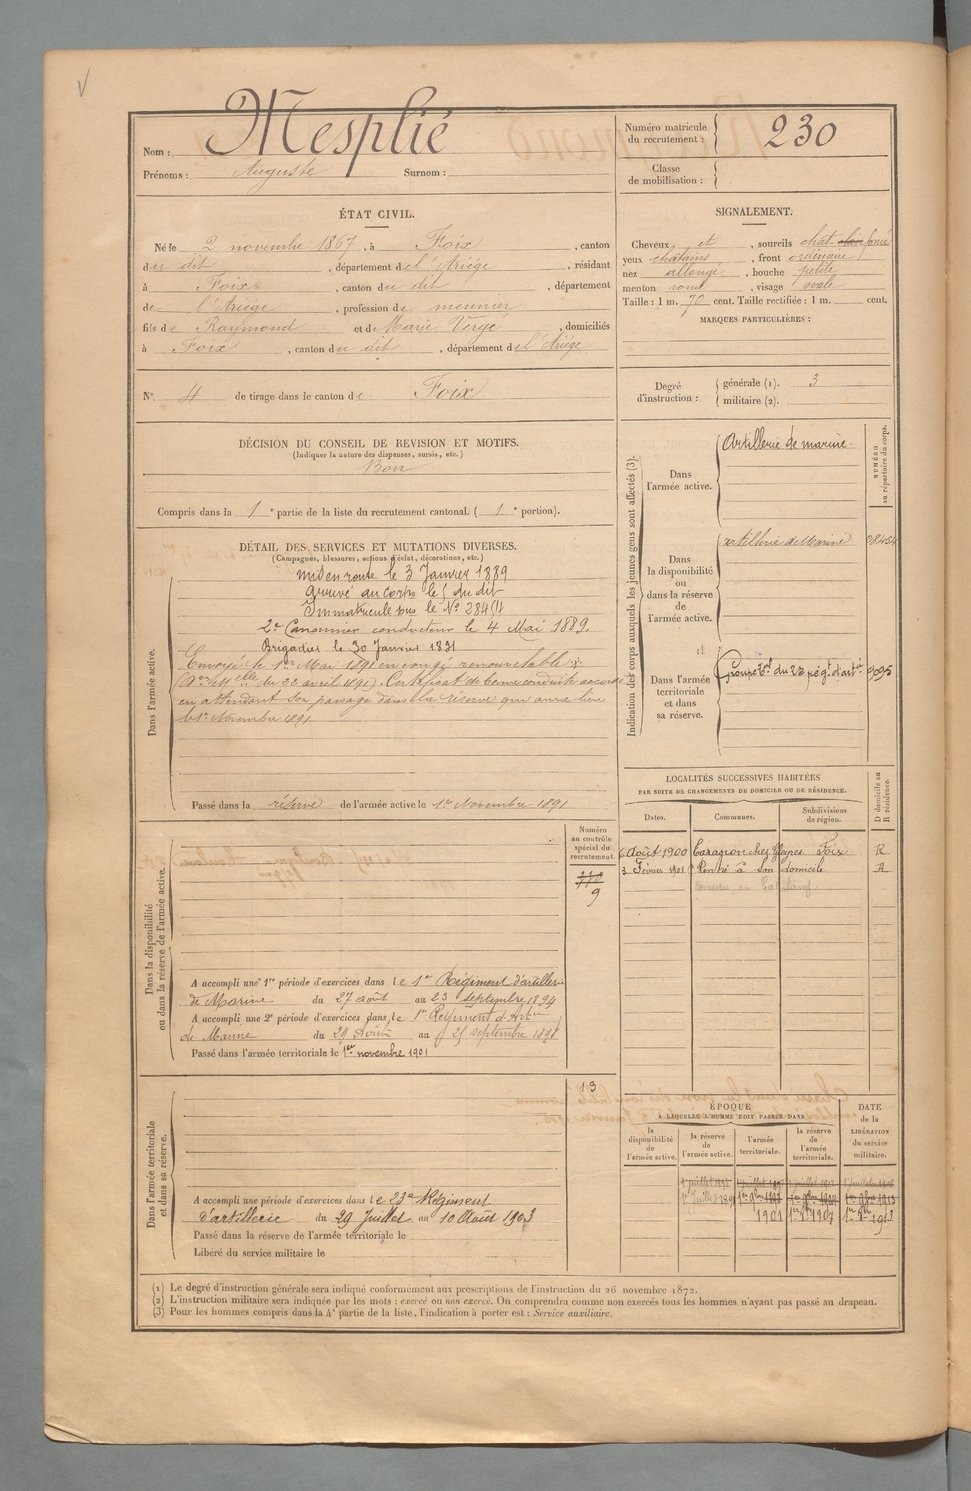 Nom : Mesplié
Prénoms : Auguste Surnom :
Numéro matricule du recrutement : 230
Classe de mobilisation :
ÉTAT CIVIL.
Né le 2 novembre 1867, à Foix, canton
du dit, département de l'Ariége, résidant
à Foix, canton du dit, département
de l'Ariége, profession de meunier
fils de Raymond et de Marie Verge, domiciliés
à Foix, canton du dit, département de l'Ariége
N° 4 de tirage dans le canton de Foix
DÉCISION DU CONSEIL DE REVISION ET MOTIFS.
(Indiquer la nature des dispenses, sursis, etc.)
Bon
Compris dans la 1e partie de la liste du recrutement cantonal. (1e portion).
DÉTAIL DES SERVICES ET MUTATIONS DIVERSES.
(Campagnes, blessures, actions d'éclat, décorations, etc.)
Dans l'armée active.
Mis en route le 3 Janvier 1889
Arrivé au corps le 5 du dit
Immatriculé sous le N° 28454
2e Canonnier conducteur le 4 Mai 1889.
Brigadier le 30 Janvier 1891
Envoyé le 1er Mai 1891 en congé renouvelable
du 22 avril 1891). Certificat de bonne conduite accordé
en attendant son passage dans la réserve qui aura lieu
le 1er Novembre 1891
Passé dans la réserve de l'armée active le 1er Novembre 1891
Dans la disponibilité ou dans la réserve de l'armée active.
Numéro au contrôle spécial du recrutement.
9
A accompli une 1re période d'exercices dans le 1er Régiment d'artillerie
de Marine du 27 août au 23 septembre 1894
A accompli une 2e période d'exercices dans le 1er Régiment d'Artie
de Marine du 29 Août au 25 septembre 1898
Passé dans l'armée territoriale le 1er novembre 1901
Dans l'armée territoriale et dans sa réserve.
13
A accompli une période d'exercices dans le 23e Régiment
d'artillerie du 29 Juillet au 10 Août 1903
Passé dans la réserve de l'armée territoriale le
Libéré du service militaire le
SIGNALEMENT.
Cheveux et, sourcils chat clair foncé
yeux chatains, front ordinaire
nez allongé, bouche petite
menton rond, visage ovale
Taille : 1 m. 70 cent. Taille rectifiée : 1 m. cent.
MARQUES PARTICULIÈRES :
Degré d'instruction : générale (1). 3
militaire (2).
Indication des corps auxquels les jeunes gens sont affectés (3).
NUMÉRO au répertoire du corps.
Dans l'armée active. Artillerie de marine.
Dans la disponibilité ou dans la réserve de l'armée active. artillerie de Marine 28454
Dans l'armée territoriale et dans sa réserve. Groupe ter du 23 régt d'artie
LOCALITÉS SUCCESSIVES HABITÉES
PAR SUITE DE CHANGEMENTS DE DOMICILE OU DE RÉSIDENCE.
Dates. Communes. Subdivisions de région. D domicile ou R résidence.
6 Août 1900 Foix R
3 Février 1901 Rentré à son domicile
ÉPOQUE
A LAQUELLE L'HOMME DOIT PASSER DANS
la disponibilité de l'armée active.
la réserve de l'armée active.
l'armée territoriale.
la réserve de l'armée territoriale.
DATE de la LIBÉRATION du service militaire.
1901 1er 9bre 1907 1er 9bre 1913
(1) Le degré d'instruction générale sera indiqué conformément aux prescriptions de l'instruction du 26 novembre 1872.
(2) L'instruction militaire sera indiquée par les mots : exercé ou non exercé. On comprendra comme non exercés tous les hommes n'ayant pas passé au drapeau.
(3) Pour les hommes compris dans la 4e partie de la liste, l'indication à porter est : Service auxiliaire.